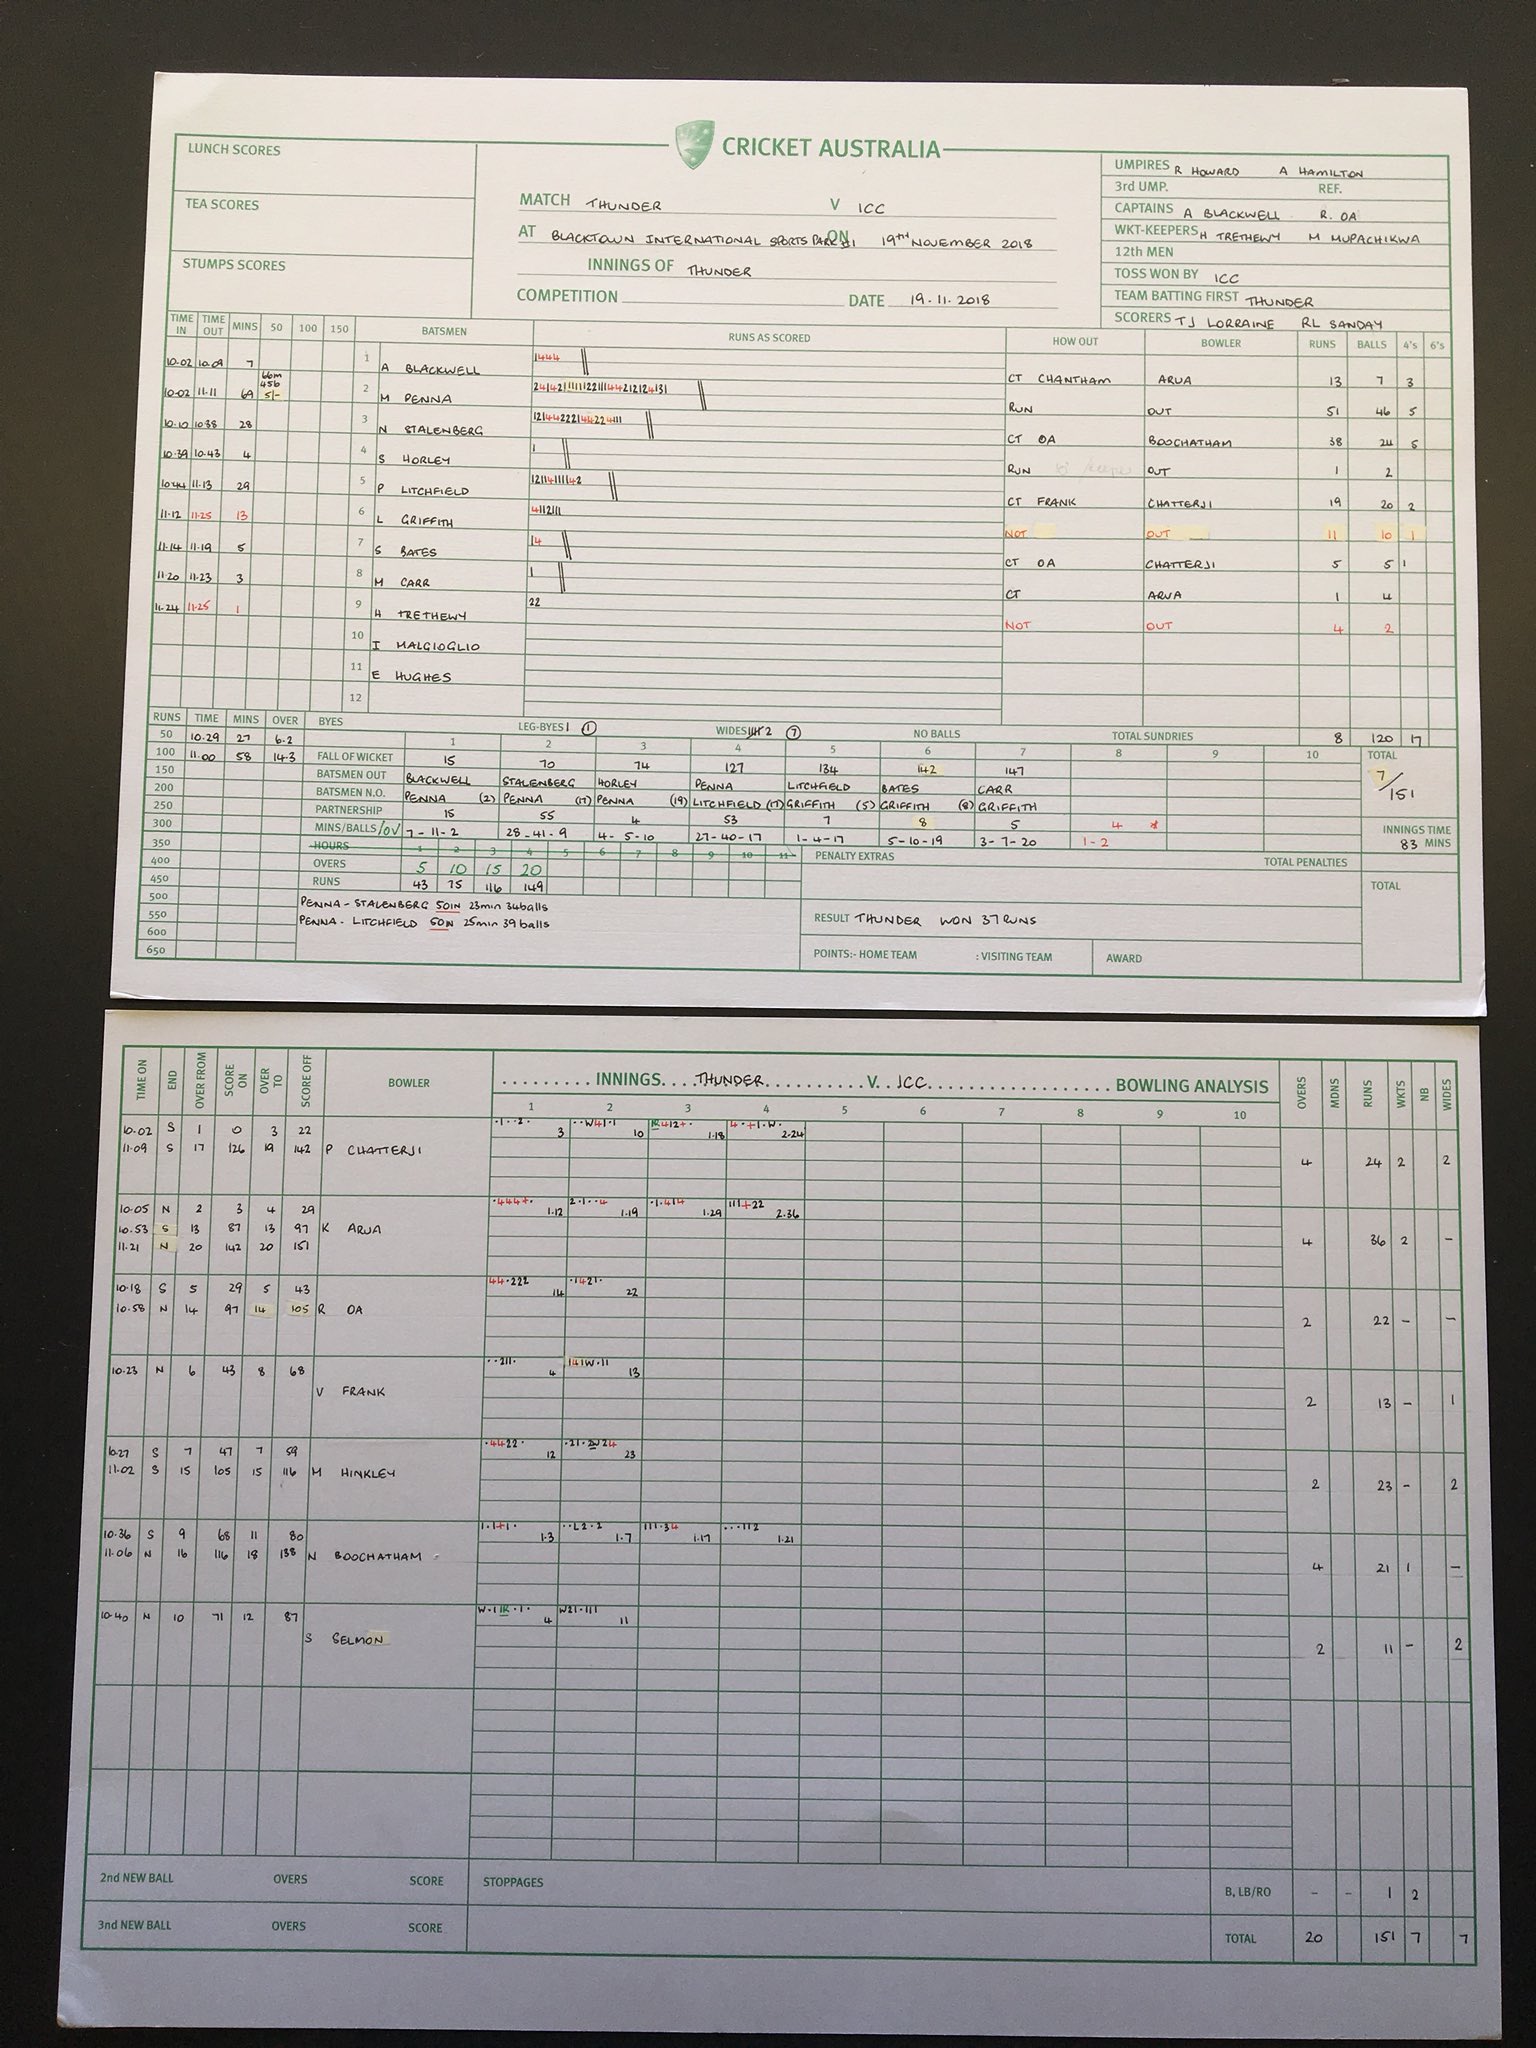 CRICKET AUSTRALIA
LUNCH SCORES
TEA SCORES
STUMPS SCORES
MATCH THUNDER V ICC
AT BLACKTOWN INTERNATIONAL SPORTS PARK #1 ON 19TH NOVEMBER 2018
INNINGS OF THUNDER
COMPETITION DATE 19.11.2018
UMPIRES R HOWARD A HAMILTON
3rd UMP. REF.
CAPTAINS A BLACKWELL R. OA
WKT-KEEPERS H TRETHEWY M MUPACHIKWA
12th MEN
TOSS WON BY ICC
TEAM BATTING FIRST THUNDER
SCORERS TJ LORRAINE RL SANDAY
TIME IN TIME OUT MINS 50 100 150 BATSMEN RUNS AS SCORED HOW OUT BOWLER RUNS BALLS 4's 6's
10.02 10.09 7 1 A BLACKWELL 1444 CT CHANTHAM ARUA 13 7 3
10.02 11.11 69 66m 45b 51- 2 M PENNA RUN OUT 51 46 5
10.10 10.38 28 3 N STALENBERG CT OA BOOCHATHAM 38 24 5
10.39 10.43 4 4 S HORLEY 1 RUN OUT 1 2
10.44 11.13 29 5 P LITCHFIELD 12114111142 CT FRANK CHATTERJI 19 20 2
11.12 11.25 13 6 L GRIFFITH 4112111 NOT OUT 11 10 1
11.14 11.19 5 7 S BATES 14 CT OA CHATTERJI 5 5 1
11.20 11.23 3 8 M CARR 1 CT ARUA 1 4
11.24 11.25 1 9 H TRETHEWY 22 NOT OUT 4 2
10 I MALGIOGLIO
11 E HUGHES
12
RUNS TIME MINS OVER BYES LEG-BYES 1 1 WIDES 2 7 NO BALLS TOTAL SUNDRIES 8 120 17
50 10.29 27 6.2 1 2 3 4 5 6 7 8 9 10 TOTAL
100 11.00 58 14.3 FALL OF WICKET 15 70 74 127 134 142 147 7/151
150 BATSMEN OUT BLACKWELL STALENBERG HORLEY PENNA LITCHFIELD BATES CARR
200 BATSMEN N.O. PENNA (2) PENNA (17) PENNA (19) LITCHFIELD (17) GRIFFITH (5) GRIFFITH (8) GRIFFITH
250 PARTNERSHIP 15 55 4 53 7 8 5 4 *
300 MINS/BALLS/OV 7-11-2 28-41-9 4-5-10 27-40-17 1-4-17 5-10-19 3-7-20 1-2 INNINGS TIME 83 MINS
350 HOURS 1 2 3 4 5 6 7 8 9 10 11 PENALTY EXTRAS TOTAL PENALTIES
400 OVERS 5 10 15 20
450 RUNS 43 75 116 149 TOTAL
500 PENNA - STALENBERG 50IN 23min 34balls
550 PENNA - LITCHFIELD 50IN 25min 39balls RESULT THUNDER WON 37 RUNS
600
650 POINTS:- HOME TEAM : VISITING TEAM AWARD
TIME ON END OVER FROM SCORE ON OVER TO SCORE OFF BOWLER INNINGS THUNDER V ICC BOWLING ANALYSIS OVERS MDNS RUNS WKTS NB WIDES
1 2 3 4 5 6 7 8 9 10
10.02 S 1 0 3 22 3 10 1.18 2.24
11.09 S 17 126 19 142 P CHATTERJI 4 24 2 2
10.05 N 2 3 4 29 1.12 1.19 1.29 2.36
10.53 S 13 87 13 97 K ARUA
11.21 N 20 142 20 151 4 36 2 -
10.18 S 5 29 5 43 44.222 14 .1421. 22
10.58 N 14 97 14 105 R OA 2 22 - -
10.23 N 6 43 8 68 ..211. 4 141W.11 13
V FRANK 2 13 - 1
10.27 S 7 47 7 59 .4422. 12 23
11.02 S 15 105 15 116 M HINKLEY 2 23 - 2
10.36 S 9 68 11 80 1.1+1. 1.3 ..L2.2 1.7 111.34 1.17 ...112 1.21
11.06 N 16 116 18 138 N BOOCHATHAM 4 21 1 -
10.40 N 10 71 12 87 4 W21.111 11
S SELMON 2 11 - 2
2nd NEW BALL OVERS SCORE STOPPAGES B, LB/RO - - 1 2
3nd NEW BALL OVERS SCORE TOTAL 20 151 7 7